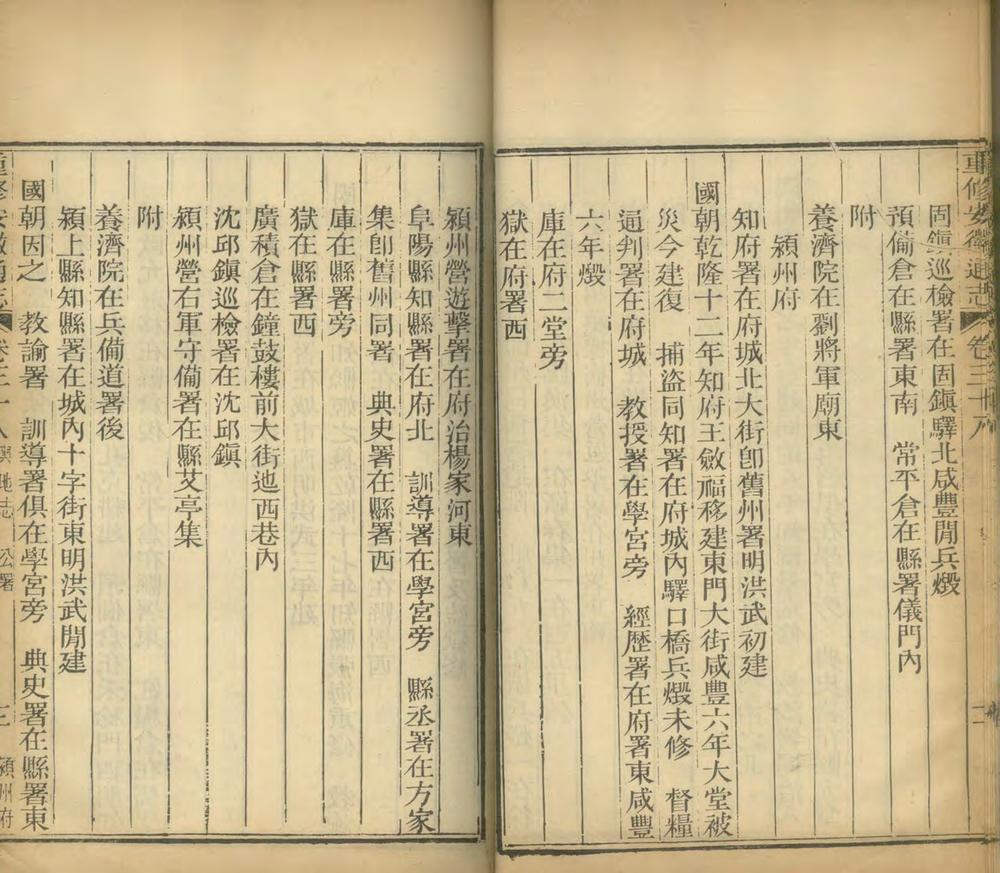 重修安徽通志 卷三十八
固鎭巡檢署在固鎭驛北咸豐閒兵燬
預備倉在縣署東南 常平倉在縣署儀門內
附
養濟院在劉將軍廟東
潁州府
知府署在府城北大街卽舊州署明洪武初建
國朝乾隆十二年知府王斂福移建東門大街咸豐六年大堂被
災今建復 捕盜同知署在府城內驛口橋兵燬未修 督糧
通判署在府城 教授署在學宮旁 經歷署在府署東咸豐
六年燬
庫在府二堂旁
獄在府署西
潁州營遊擊署在府治楊家河東
阜陽縣知縣署在府北 訓導署在學宮旁 縣丞署在方家
集卽舊州同署 典史署在縣署西
庫在縣署旁
獄在縣署西
廣積倉在鐘鼓樓前大街迤西巷內
沈邱鎭巡檢署在沈邱鎭
潁州營右軍守備署在縣艾亭集
附
養濟院在兵備道署後
潁上縣知縣署在城內十字街東明洪武閒建
國朝因之 教諭署 訓導署俱在學宮旁 典史署在縣署東
重修安徽通志 卷三十八 輿地志 公署 三 潁州府